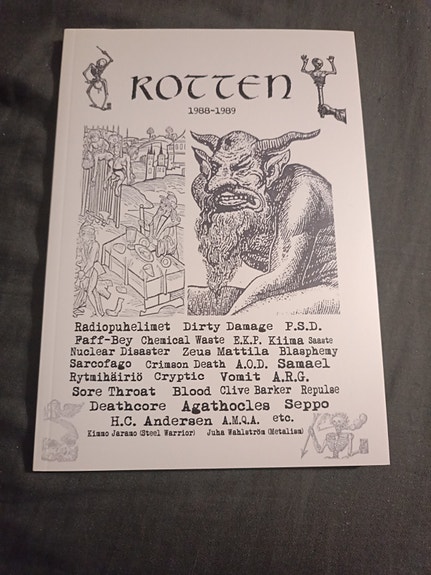 ROTTEN
1988-1989
Radiopuhelimet Dirty Damage P.S.D.
Faff-Bey Chemical Waste E.K.P. Kiima Saaste
Nuclear Disaster Zeus Mattila Blasphemy
Sarcofago Crimson Death A.O.D. Samael
Rytmihäiriö Cryptic Vomit A.R.G.
Sore Throat Blood Clive Barker Repulse
Deathcore Agathocles Seppo
H.C. Andersen A.M.Q.A. etc.
Kimmo Jaramo (Steel Warrior) Juha Wahlström (Metalism)